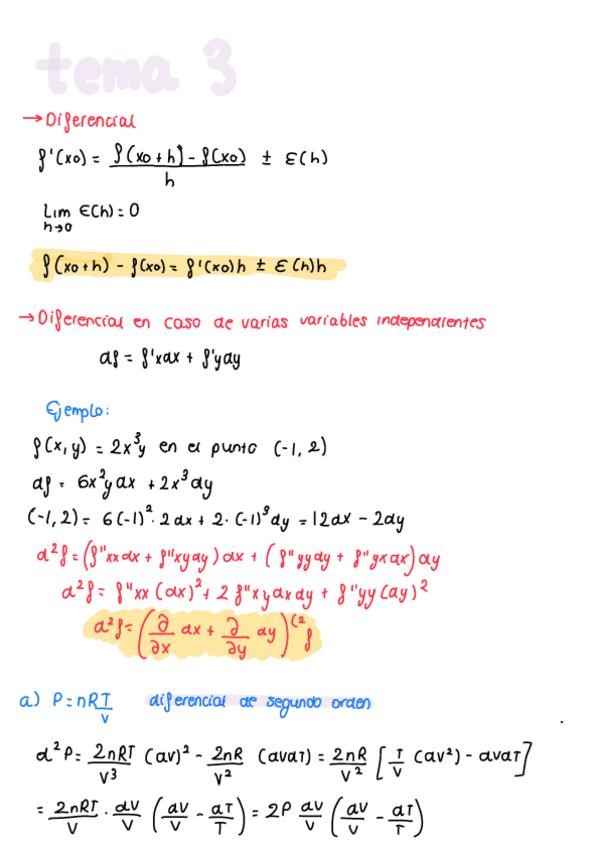 tema 3
→ Diferencial
f'(xo) = f(xo+h) - f(xo) / h ± ε(h)
lim h→0 ε(h) = 0
f(xo+h) - f(xo) = f'(xo)h ± ε(h)h
→ Diferencial en caso de varias variables independientes
df = f'xdx + f'ydy
Ejemplo:
f(x,y) = 2x³y en el punto (-1,2)
df = 6x²ydx + 2x³dy
(-1,2) = 6(-1)²·2dx + 2·(-1)³dy = 12dx - 2dy
d²f = (f''xxdx + f''xydy)dx + (f''yydy + f''yxdx)dy
d²f = f''xx(dx)² + 2f''xydxdy + f''yy(dy)²
d²f = (∂/∂x dx + ∂/∂y dy)⁽² f
a) P = nRT/V diferencial de segundo orden
d²P = 2nRT/V³ (dv)² - 2nR/V² (dvdT) = 2nR/V² [T/V (dv²) - dvdT]
= 2nRT/V · dv/V (dv/V - dT/T) = 2P dv/V (dv/V - dT/T)